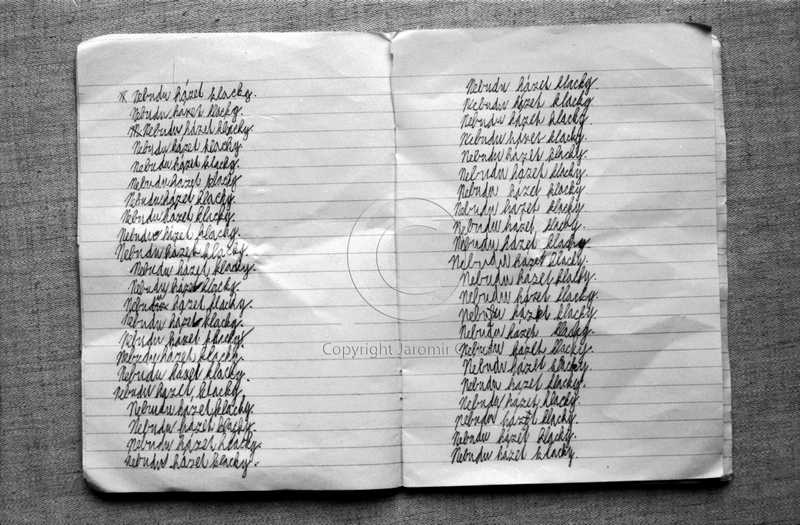 * Nebudu házet klacky.
Nebudu házet klacky.
* Nebudu házet klacky.
Nebudu házet klacky.
Nebudu házet klacky.
Nebudu házet klacky
Nebudu házet klacky.
Nebudu házet klacky.
Nebudu házet klacky.
Nebudu házet klacky.
Nebudu házet klacky.
Nebudu házet klacky
Nebudu házet klacky.
Nebudu házet klacky.
Nebudu házet klacky.
Nebudu házet klacky.
Nebudu házet klacky.
Nebudu házet klacky.
Nebudu házet klacky.
Nebudu házet klacky.
Nebudu házet klacky.
Nebudu házet klacky.
Nebudu házet klacky
Nebudu házet klacky
Nebudu házet klacky.
Nebudu házet klacky.
Nebudu házet klacky.
Nebudu házet klacky.
Nebudu házet klacky
Nebudu házet klacky.
Nebudu házet klacky.
Nebudu házet klacky
Nebudu házet klacky.
Nebudu házet klacky.
Nebudu házet klacky.
Nebudu házet klacky.
Nebudu házet klacky.
Nebudu házet klacky.
Nebudu házet klacky.
Nebudu házet klacky.
Nebudu házet klacky.
Nebudu házet klacky.
Nebudu házet klacky.
Nebudu házet klacky.
Copyright Jaromir